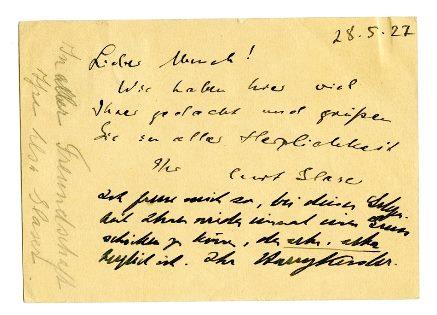 28.5.27
Lieber Munch!
Wir haben hier viel
Ihrer gedacht und grüßen
Sie in aller Herzlichkeit
Ihr Curt Glaser
Ich freue mich so, bei dieser Gelegen-
heit Ihnen wieder einmal einen Gruss
schicken zu können, der sehr, sehr
herzlich ist. Ihr Harry Kessler.
In alter Freundschaft
Ihre Elsa Glaser.